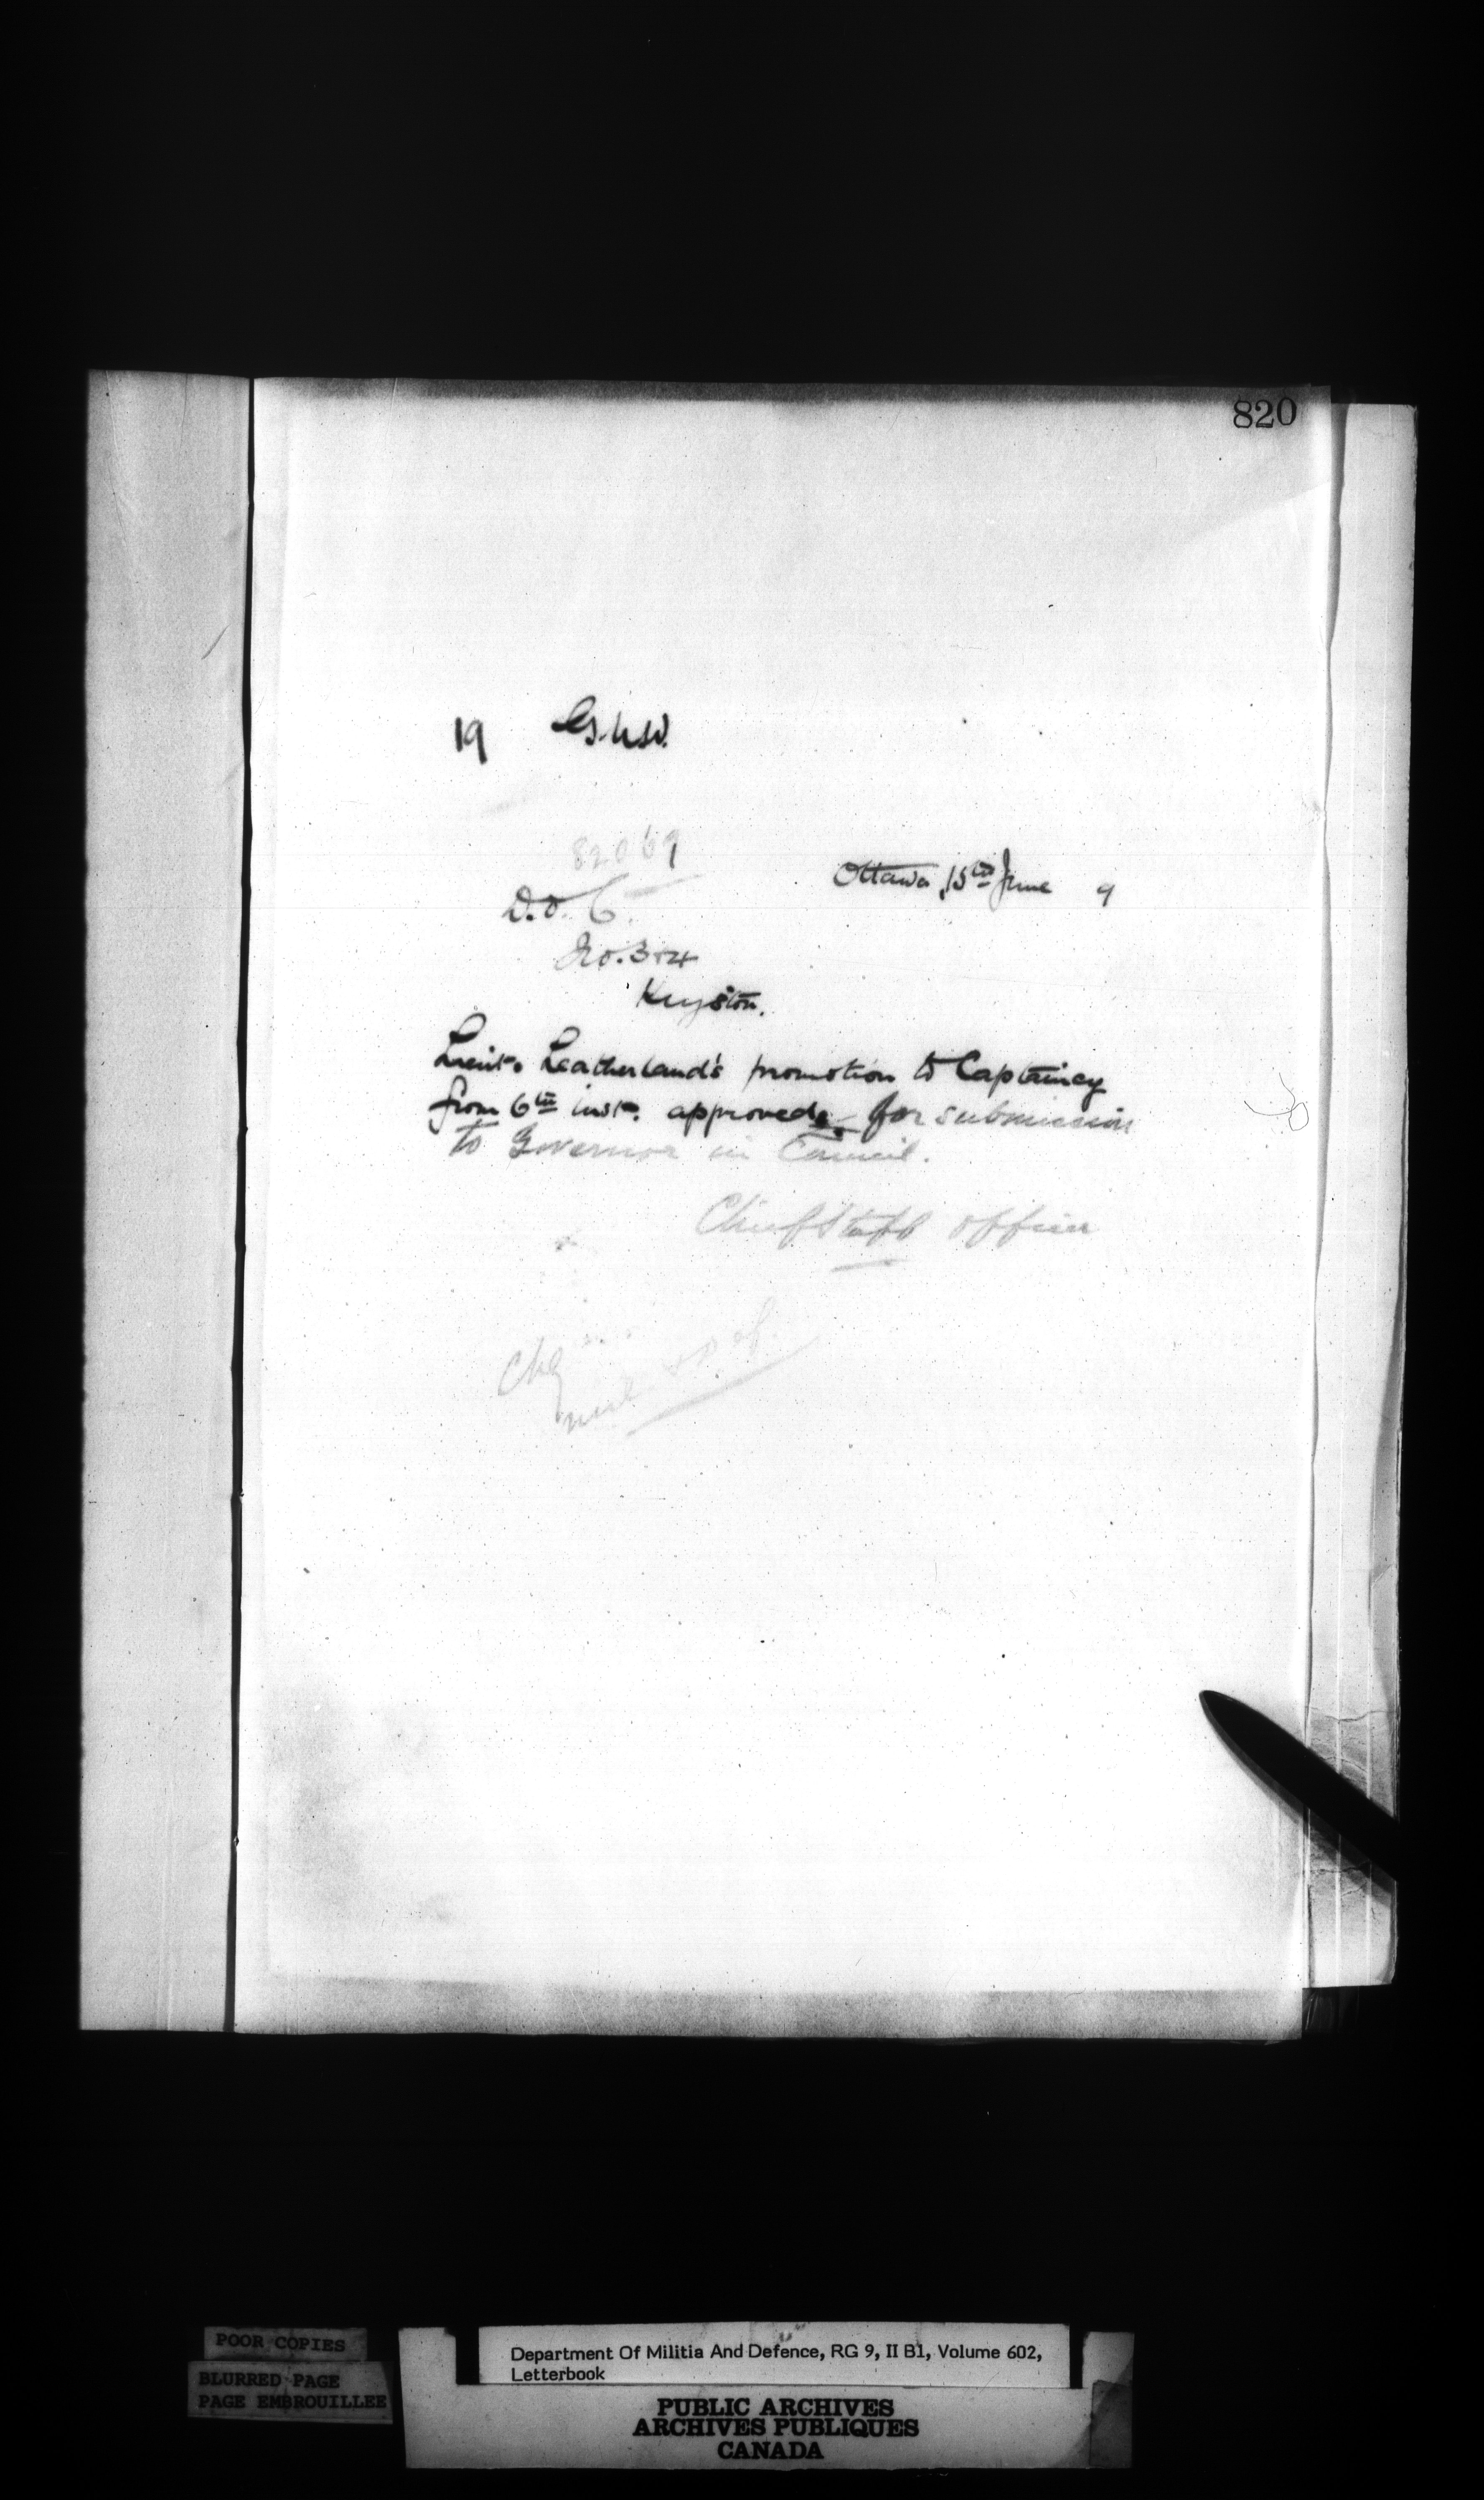 820
19
82069
Ottawa, 15th June 9
D.O.C.
No. 3 & 4
Kingston.
Lieut. Leatherland's promotion to Captaincy
from 6th inst. approved, for submission
to Governor in Council.
Chief Staff Officer
POOR COPIES
BLURRED PAGE
PAGE EMBROUILLEE
Department Of Militia And Defence, RG 9, II B1, Volume 602,
Letterbook
PUBLIC ARCHIVES
ARCHIVES PUBLIQUES
CANADA